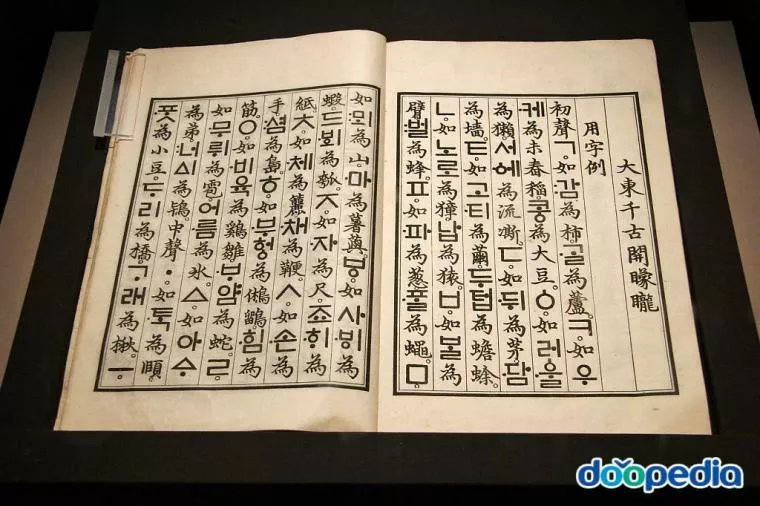 大東千古開矇矓
用字例
初聲ㄱ。如감為柿。ᄀᆞᆯ為蘆。ㅋ。如우
케為未舂稻。콩為大豆。ㆁ。如러울
為獺。서에為流凘。ㄷ。如뒤為茅。담
為墻。ㅌ。如고티為繭。두텁為蟾蜍。
ㄴ。如노로為獐。납為猿。ㅂ。如ᄇᆞᆯ為
臂。벌為蜂。ㅍ。如파為葱。ᄑᆞᆯ為蠅。ㅁ。
如뫼為山。마為薯藇。ㅸ。如사ᄫᅵ為
蝦。드ᄫᅴ為瓠。ㅈ。如자為尺。죠ᄒᆡ為
紙。ㅊ。如체為籭。채為鞭。ㅅ。如손為
手。셤為島。ㅎ。如부헝為鵂鶹。힘為
筋。ㅇ。如비육為鷄雛。ᄇᆞ얌為蛇。ㄹ。
如무뤼為雹。어름為氷。ㅿ。如아ᅀᆞ
為弟。너ᅀᅵ為鴇。中聲ㆍ。如ᄐᆞᆨ為頤。
ᄑᆞᆺ為小豆。ᄃᆞ리為橋。ᄀᆞ래為楸。ㅡ。
doopedia